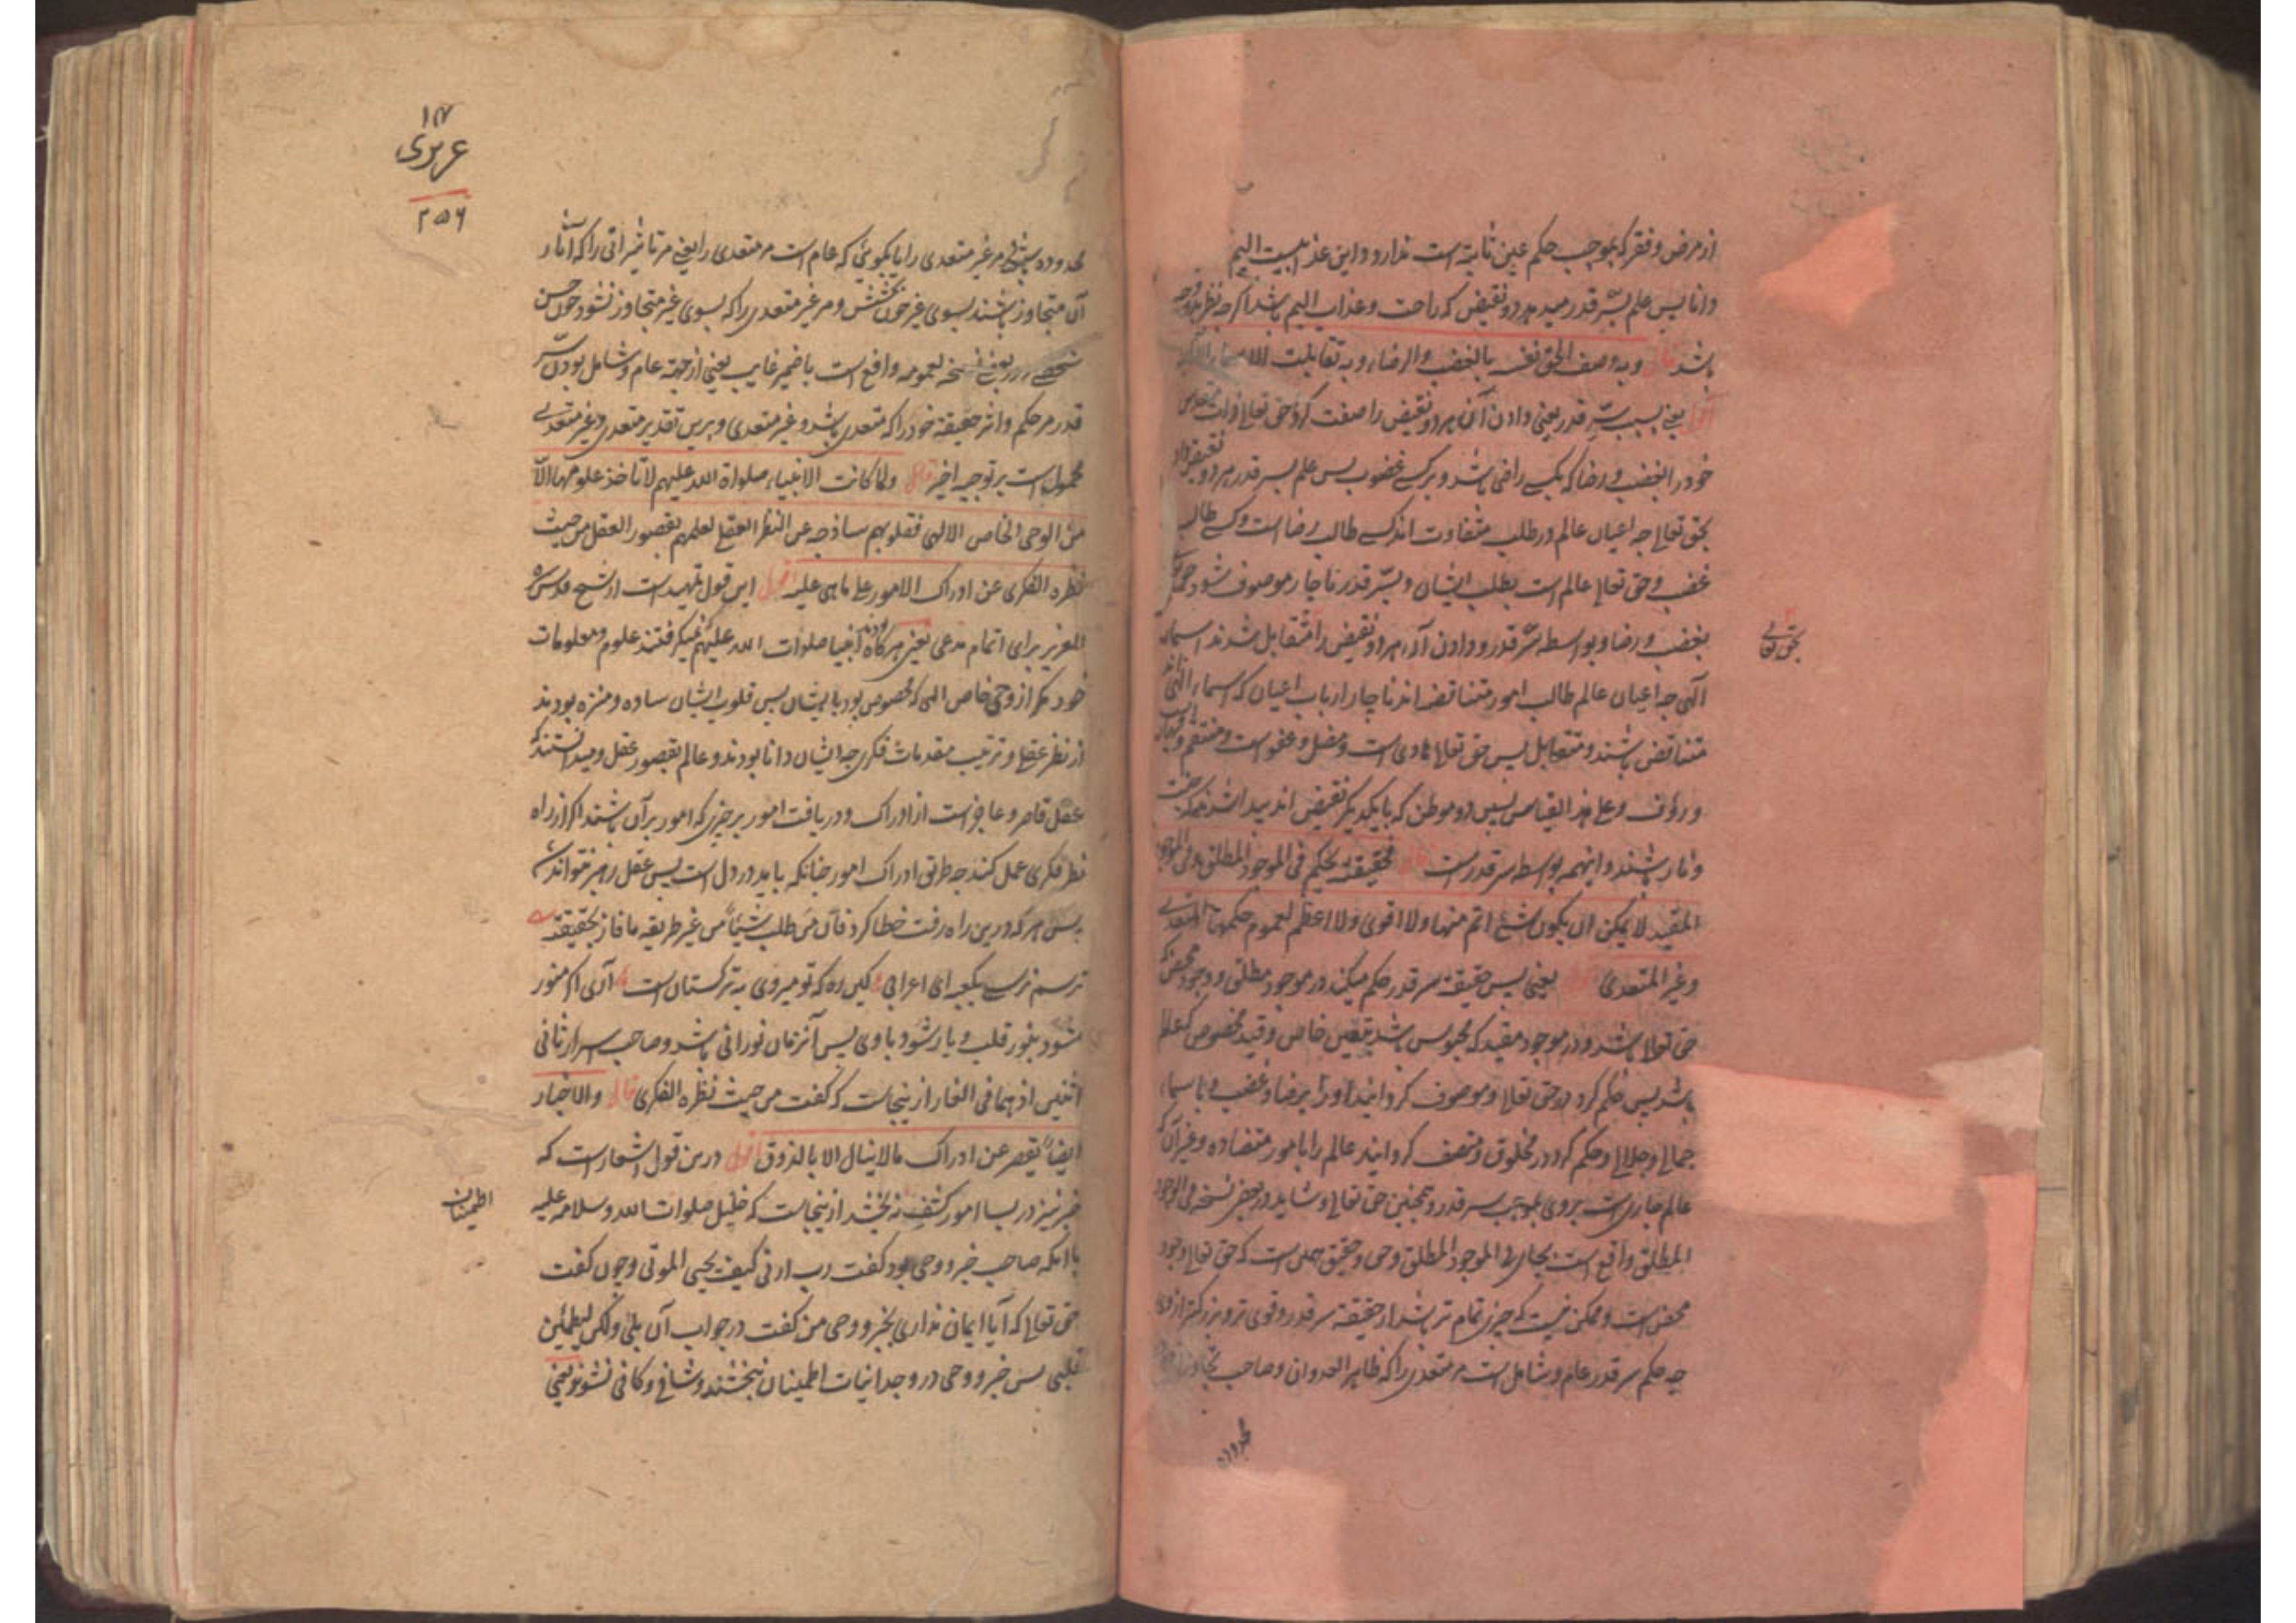 از مرض و فقر که بموجب حکم عین ثابته است ندارد و این عذابیست الیم
دانا پس علم بسر قدر میدهد دو نقیض که راحت و عذاب الیم باشد اگرچه نظر بدو وجه
باشد قال وبه وصف الحق نفسه بالغضب والرضاء وبه تقابلت الاسماء الالهیه
اقول یعنی بسبب سر قدر یعنی دادن آن هر دو نقیض را صفت کرد حق تعالی ذات
خود را بغضب و رضا که بیکی راضی باشد و بر کسی غضوب پس علم بسر قدر هر دو نقیض داد
بحق تعالی چه اعیان عالم در طلب متفاوت اند کسی طالب رضا است و کسی طالب
غضب و حق تعالی عالم است بطلب ایشان و بسر قدر ناچار موصوف شود
بحق تعالی
بغضب و رضا و بواسطه سر قدر و دادن آن هر دو نقیض را متقابل شدند اسماء
الهی چه اعیان عالم طالب امور متناقضه اند ناچار ارباب اعیان که اسماء الهی اند
متناقض باشند و متقابل پس حق تعالی هادی است و مضل و عفو است و منتقم
و رؤف و علی هذا القیاس پس دو موطن که با یکدیگر نقیض اند پیدا شدند که جنت
و نار باشند و اینهمه بواسطه سر قدر است قال فحقیقته تحکم فی الموجود المطلق وفی الموجود
المقید لا یمکن ان یکون شئ اتم منها ولا اقوی ولا اعظم لعموم حکمها المتعدی
وغیر المتعدی اقول یعنی پس حقیقة سر قدر حکم میکند در موجود مطلق و وجود محض که
حق تعالی باشد و در موجود مقید که محبوس باشد بتعین خاص و قید مخصوص که عالم
باشد پس حکم کرد در حق تعالی و موصوف گردانید او را برضا و غضب و باسماء
جمالی و جلالی و حکم کرد در مخلوق و متصف گردانید عالم را بامور متضاده و غیر آن که
عالم جاری است بر وی بموجب سر قدر و همچنین حق تعالی و شاید در بعض نسخه فی الوجود
المطلق واقع است بجای فی الموجود المطلق وحی وحقیق جلی است که حق تعالی وجود
محض است و ممکن نیست که چیزی تمام تر باشد از حقیقة سر قدر و قوی تر و بزرگتر از وی
چه حکم سر قدر عام و شامل است مر متعدی را که ظاهر العدوان و صاحب تجاوز از
محدوده
عزیزی
۲۵۶
محدوده باشد مر غیر متعدی را یا بگوئی که عام است مر متعدی را یعنی مر تاثیراتی را که آثار
آن متجاوز باشند بسوی غیر چون بخشش و مر غیر متعدی را که بسوی غیر متجاوز نشود چون حسن
شخصی و در بعضی نسخه لعمومه واقع است با ضمیر غایب یعنی از جهة عام و شامل بودن سر
قدر مر حکم و اثر حقیقة خود را که متعدی باشد و غیر متعدی و برین تقدیر متعدی و غیر متعدی
محمول است بر توجیه اخیر قال ولما کانت الانبیاء صلواة الله علیهم لا تاخذ علومها الا
من الوحی الخاص الالهی فقلوبهم ساذجه عن النظر العقلی لعلمهم بقصور العقل من حیث
نظره الفکری عن ادراک الامور علی ما هی علیه اقول این قول تمهید است از شیخ قدس سره
العزیز برای اتمام مدعی یعنی هر گاه انبیا صلوات الله علیهم نمیگرفتند علوم و معلومات
خود مگر از وحی خاص الهی که مخصوص بود بایشان پس قلوب ایشان ساده و منزه بودند
از نظر عقلی و ترتیب مقدمات فکری چه ایشان دانا بودند و عالم بقصور عقل و میدانستند که
عقل قاصر و عاجز است از ادراک و دریافت امور بر چیزی که امور بر آن باشند اگر از راه
نظر فکری عمل کند چه طریق ادراک امور چنانکه باید در دل است پس عقل رهبر نتواند شد
پس هر که درین راه رفت خطا کرد فان من طلب شیئاً من غیر طریقه ما فاز بحقیقته
ترسم نرسی بکعبه ای اعرابی کین ره که تو میروی به ترکستان است آری اگر منور
شود بنور قلب و یار شود با وی پس آنزمان نورانی باشد و صاحب اسرار ثانی
اثنین اذ هما فی الغار از ینجاست که گفت من حیث نظره الفکری قال والاخبار
ایضاً یقصر عن ادراک ما لا ینال الا بالذوق اقول درین قول اشعار است که
خبر نیز در بسا امور کشف نبخشد از ینجاست که خلیل صلوات الله و سلامه علیه
اطمینان
با آنکه صاحب خبر و وحی بود گفت رب ارنی کیف تحیی الموتی و چون گفت
حق تعالی که آیا ایمان نداری بخبر و وحی من گفت در جواب آن بلی ولکن لیطمئن
قلبی پس خبر و وحی در وجدانیات اطمینان نبخشند و شافی و کافی نشوند یعنی